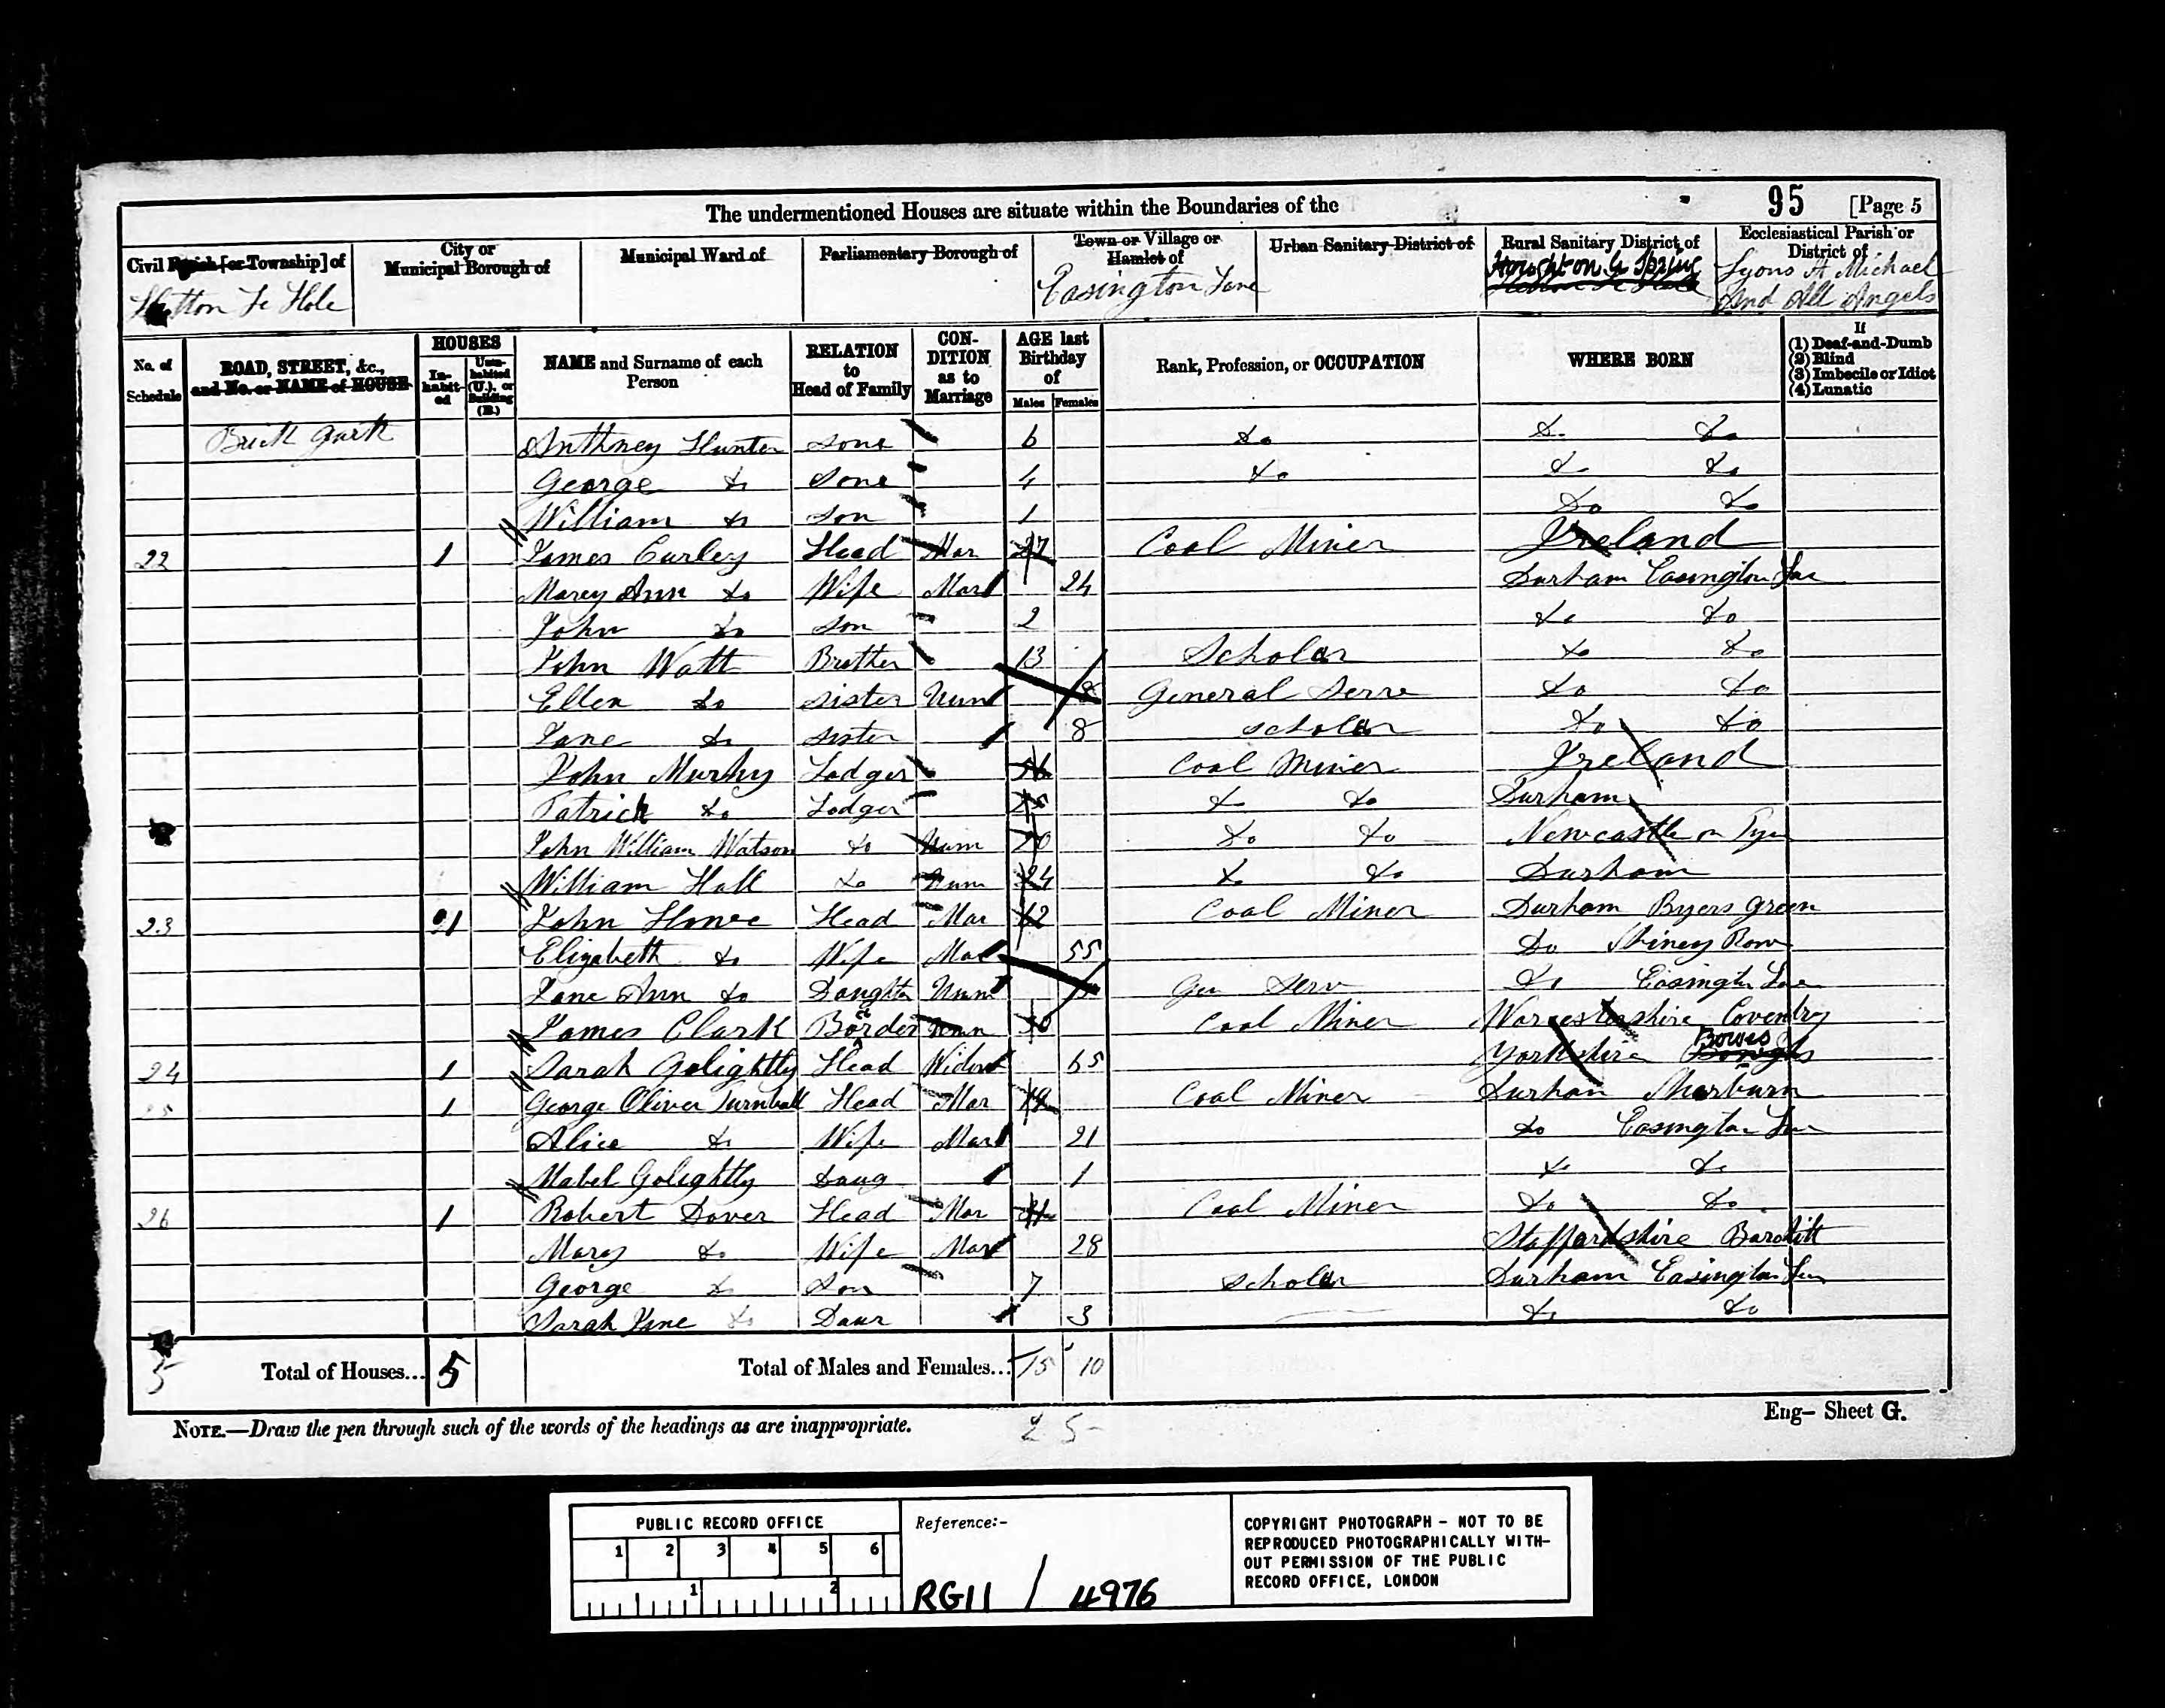 The undermentioned Houses are situate within the Boundaries of the 95 [Page 5
Civil Parish [or Township] of City or Municipal Borough of Municipal Ward of Parliamentary Borough of Town or Village or Hamlet of Urban Sanitary District of Rural Sanitary District of Ecclesiastical Parish or District of
Hetton Le Hole Easington Lane Houghton le Spring Lyons St Michael And All Angels
No. of Schedule ROAD, STREET, &c., and No. or NAME of HOUSE HOUSES In-habit-ed Unin-habited (U.), or Building (B.) NAME and Surname of each Person RELATION to Head of Family CON-DITION as to Marriage AGE last Birthday of Males Females Rank, Profession, or OCCUPATION WHERE BORN If (1) Deaf-and-Dumb (2) Blind (3) Imbecile or Idiot (4) Lunatic
Brick Garth Anthney Hunter Sone 6 Do Do Do
George Do Sone 4 Do Do Do
William Do Son 1 Do Do
22 1 James Curley Head Mar 27 Coal Miner Ireland
Marey Ann Do Wife Mar 24 Durham Easington Lane
John Do Son 2 Do Do
John Watt Brother 13 Scholar Do Do
Ellen Do Sister Unm General Serve Do Do
Jane Do Sister 8 Scholar Do Do
John Murhy Lodger Coal Miner Ireland
Patrick Do Lodger Do Do Durham
John William Watson Do Unm 20 Do Do Newcastle on Tyne
William Hall Do Unm 24 Do Do Durham
23 1 John Howe Head Mar Coal Miner Durham Byers Green
Elizabeth Do Wife Mar 55 Do Shiney Row
Jane Ann Do Daughter Unm Gen Serv Do Easington Lane
James Clark Border Unm 30 Coal Miner Worcestershire Coventry
24 1 Sarah Golightly Head Widow 65 Yorkshire Bowes
25 1 George Oliver Turnball Head Mar Coal Miner Durham Sherburn
Alice Do Wife Mar 21 Do Easington Lane
Mabel Golightly Daug 1 Do Do
26 1 Robert Dover Head Mar Coal Miner Do Do
Mary Do Wife Mar 28 Staffordshire
George Do Son 7 Scholar Durham Easington Lane
Sarah Jane Do Daur 3 Do Do
5 Total of Houses... 5 Total of Males and Females... 15 10
NOTE.—Draw the pen through such of the words of the headings as are inappropriate. 25 Eng- Sheet G.
PUBLIC RECORD OFFICE Reference:- COPYRIGHT PHOTOGRAPH - NOT TO BE
1 2 3 4 5 6 REPRODUCED PHOTOGRAPHICALLY WITH-
OUT PERMISSION OF THE PUBLIC
1 2 RG11 / 4976 RECORD OFFICE, LONDON